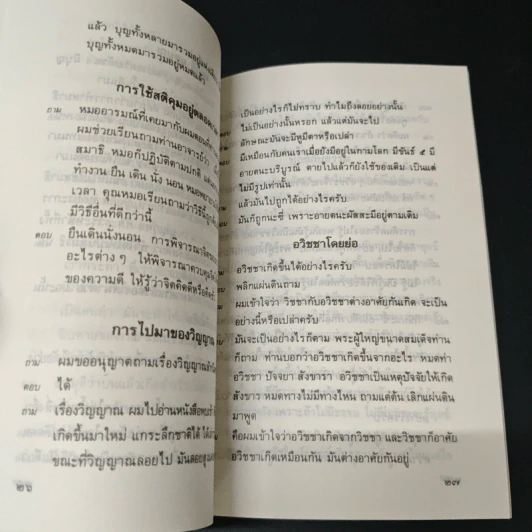 แล้ว บุญทั้งหลายมารวมอยู่
บุญทั้งหมดมารวมอยู่หมดแล้ว
การใช้สติคุมอยู่ตลอด
ถาม หมออารมณ์ที่เคยมากับผมตอน
ผมช่วยเรียนถามท่านอาจารย์ว่า
สมาธิ หมอก็ปฏิบัติตามปกติ
ทำงาน ยืน เดิน นั่ง นอน หมอพยายาม
เวลา คุณหมอเรียนถามว่าวิธีนี้ถูก
มีวิธีอื่นที่ดีกว่านี้
ตอบ ยืนเดินนั่งนอน การพิจารณา
อะไรต่าง ๆ ให้พิจารณาควบคู่
ของความดี ให้รู้ว่าจิตคิดดีหรือ
การไปมาของวิญญาณ
ถาม ผมขออนุญาตถามเรื่องวิญญาณ
ตอบ ได้
ถาม เรื่องวิญญาณ ผมไปอ่านหนังสือพบ
เกิดขึ้นมาใหม่ แกระลึกชาติได้
ขณะที่วิญญาณลอยไป มันลอย
๒๖
เป็นอย่างไรก็ไม่ทราบ ทำไมถึงลอยอย่างนั้น
ไม่เป็นอย่างนั้นหรอก แล้วแต่มันจะไป
ลักษณะมันจะมีหูมีตาหรือเปล่า
มีเหมือนกับคนเราเมื่อยังมีอยู่ในกามโลก มีขันธ์ ๕ มี
อายตนะบริบูรณ์ ตายไปแล้วก็ยังใช้ของเดิม เป็นแต่
ไม่มีรูปเท่านั้น
แล้วมันไปถูกได้อย่างไรครับ
มันก็ถูกนะซี่ เพราะอายตนะผัสสะมีอยู่ตามเดิม
อวิชชาโดยย่อ
อวิชชาเกิดขึ้นได้อย่างไรครับ
พลิกแผ่นดินถาม
ผมเข้าใจว่า วิชชากับอวิชชาต่างอาศัยกันเกิด จะเป็น
อย่างนี้หรือเปล่าครับ
มันจะเป็นอย่างไรก็ตาม พระผู้ใหญ่ขนาดสมเด็จท่าน
ก็ถาม ท่านบอกว่าอวิชชาเกิดขึ้นจากอะไร หมดท่า
อวิชชา ปัจจยา สังขารา อวิชชาเป็นเหตุปัจจัยให้เกิด
สังขาร หมดทางไม่มีทางไหน ถามแต่ต้น เลิกแผ่นดิน
มาพูด
คือผมเข้าใจว่าอวิชชาเกิดจากวิชชา และวิชชาก็อาศัย
อวิชชาเกิดเหมือนกัน มันต่างอาศัยกันอยู่
๒๗